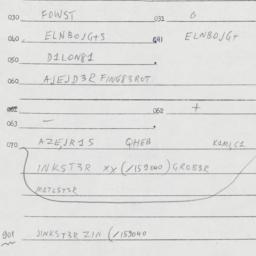 030 FOWST 031 6
040 ELNBOJG+S 041 ELNBOJG+
050 D1LON81
060 AJEJD3R FING83ROT
062 062 +
063 —
070 AZEJR1S QHEB KAMJC1
INKST3R XY (/159040) GROE3R
MATLST3R
901 JINKST3R ZIN (/159040